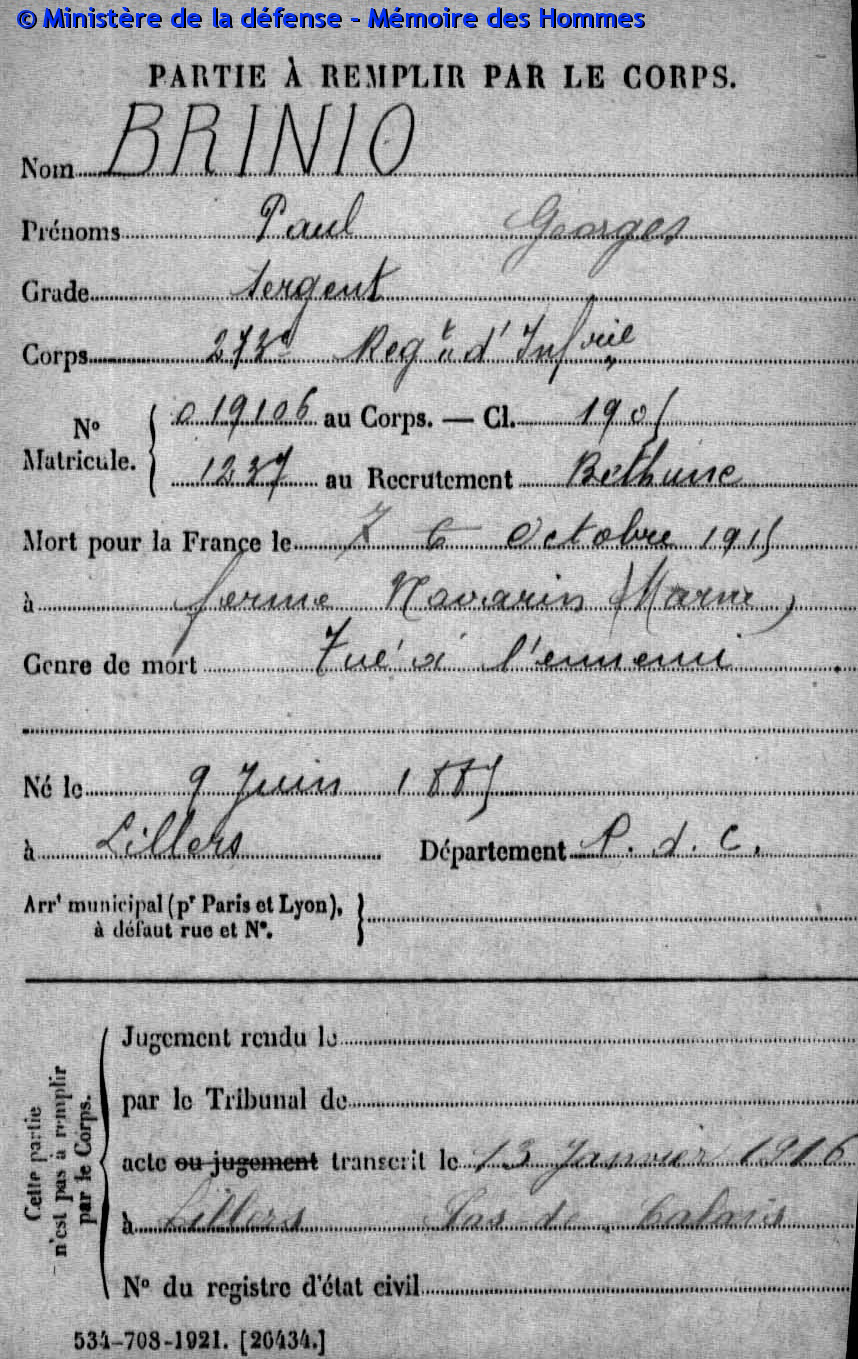 © Ministère de la défense - Mémoire des Hommes
PARTIE À REMPLIR PAR LE CORPS.
Nom BRINIO
Prénoms Paul Georges
Grade Sergent
Corps 273e Regt d'Infrie
No Matricule. 019106 au Corps. — Cl. 1905
1237 au Recrutement Béthune
Mort pour la France le 7 6 Octobre 1915
à ferme Navarin (Marne)
Genre de mort Tué à l'ennemi
Né le 9 Juin 1885
à Lillers Département P. d. C.
Arrt municipal (pr Paris et Lyon),
à défaut rue et No.
Cette partie n'est pas à remplir par le Corps.
Jugement rendu le
par le Tribunal de
acte ou jugement transcrit le 13 Janvier 1916
à Lillers Pas de Calais
No du registre d'état civil
534-708-1921. [26434.]